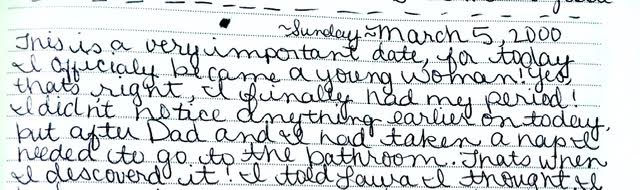 ~Sunday~March 5, 2000
This is a very important date, for today
I officialy became a young woman! Yes,
thats right, I finally had my period!
I didn't notice anything earlier on today,
but after Dad and I had taken a nap I
needed to go to the bathroom. Thats when
I discoverd it! I told Laura I thought I